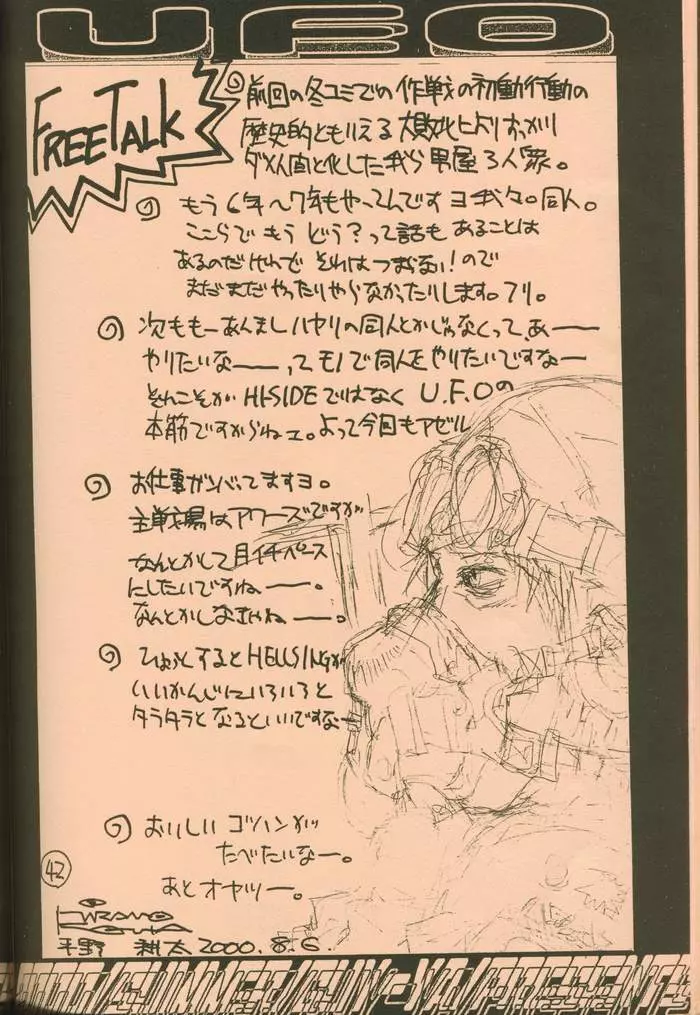 UFO
FREE TALK
前回の冬コミでの作戦の初動行動の
歴史的ともいえる大敗北によりすっかり
ダメ人間と化した我ら男屋3人衆。
もう6年〜7年もやってんですヨ我々。同人。
ここらでもうどう？って話もあることは
あるのだけれど それはつまらない！ので
まだまだやったりやらなかったりします。フリ。
次ももーあんましハヤリの同人とかじゃなくって、あーー
やりたいなーーってモノで同人をやりたいですなー
それこそが HI-SIDEではなく U.F.Oの
本筋ですからねェ。よって今回もアゼル
お仕事ガンバってますヨ。
主戦場はアワーズですが
なんとかして月イチペース
にしたいですねーー。
なんとかしなきゃねーー。
ひょっとすると HELLSINGが
いいかんじにいろいろと
タラタラとなるといいですなー
おいしい ゴハンが
たべたいなー。
あと オヤツー。
42
HIRANO
KOUTA
平野 耕太 2000.8.6.